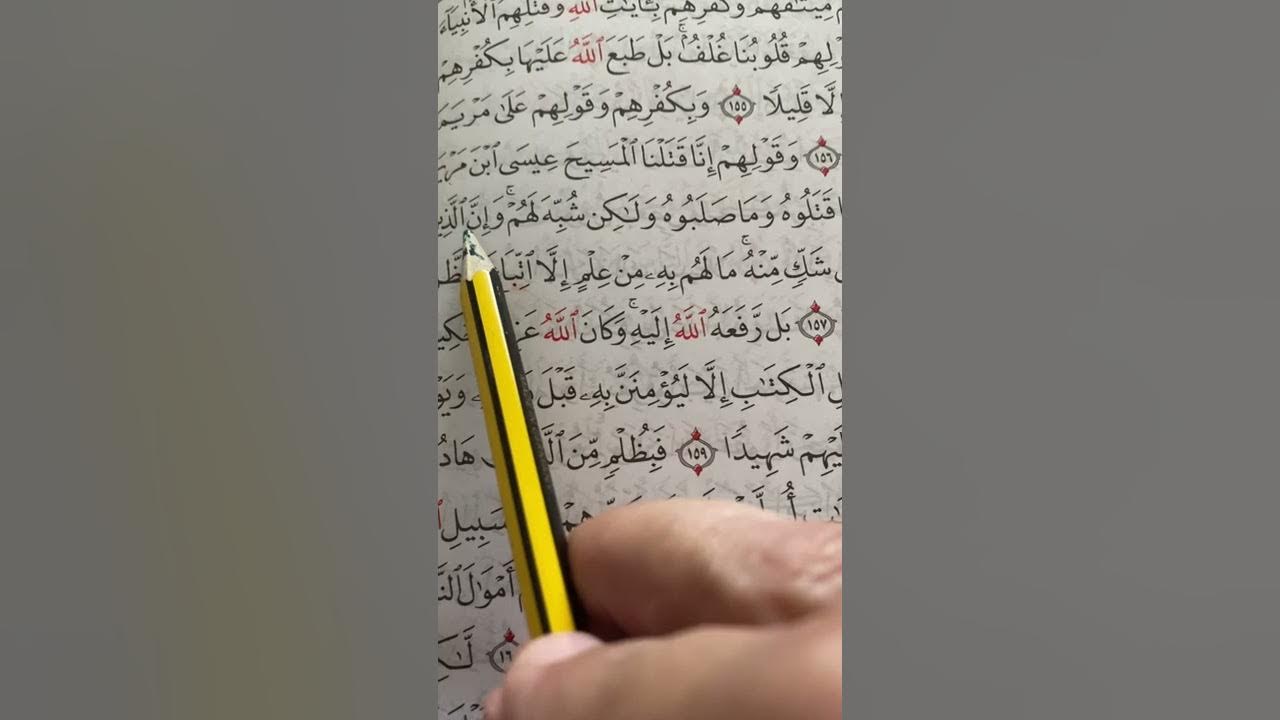 مِيثَٰقَهُمْ وَكُفْرِهِم بِـَٔايَٰتِ ٱللَّهِ وَقَتْلِهِمُ ٱلْأَنۢبِيَآءَ
قُلُوبُنَا غُلْفٌۢ ۚ بَلْ طَبَعَ ٱللَّهُ عَلَيْهَا بِكُفْرِهِمْ
إِلَّا قَلِيلًا ١٥٥ وَبِكُفْرِهِمْ وَقَوْلِهِمْ عَلَىٰ مَرْيَمَ
١٥٦ وَقَوْلِهِمْ إِنَّا قَتَلْنَا ٱلْمَسِيحَ عِيسَى ٱبْنَ مَرْيَ
قَتَلُوهُ وَمَا صَلَبُوهُ وَلَٰكِن شُبِّهَ لَهُمْ ۚ وَإِنَّ ٱلَّذِي
شَكٍّ مِّنْهُ ۚ مَا لَهُم بِهِۦ مِنْ عِلْمٍ إِلَّا ٱتِّبَا
١٥٧ بَل رَّفَعَهُ ٱللَّهُ إِلَيْهِ ۚ وَكَانَ ٱللَّهُ عَ
ٱلْكِتَٰبِ إِلَّا لَيُؤْمِنَنَّ بِهِۦ قَبْلَ
شَهِيدًا ١٥٩ فَبِظُلْمٍ مِّنَ ٱلَّ هَادُ
سَبِيلِ
أَمْوَٰلَ ٱلنَّ